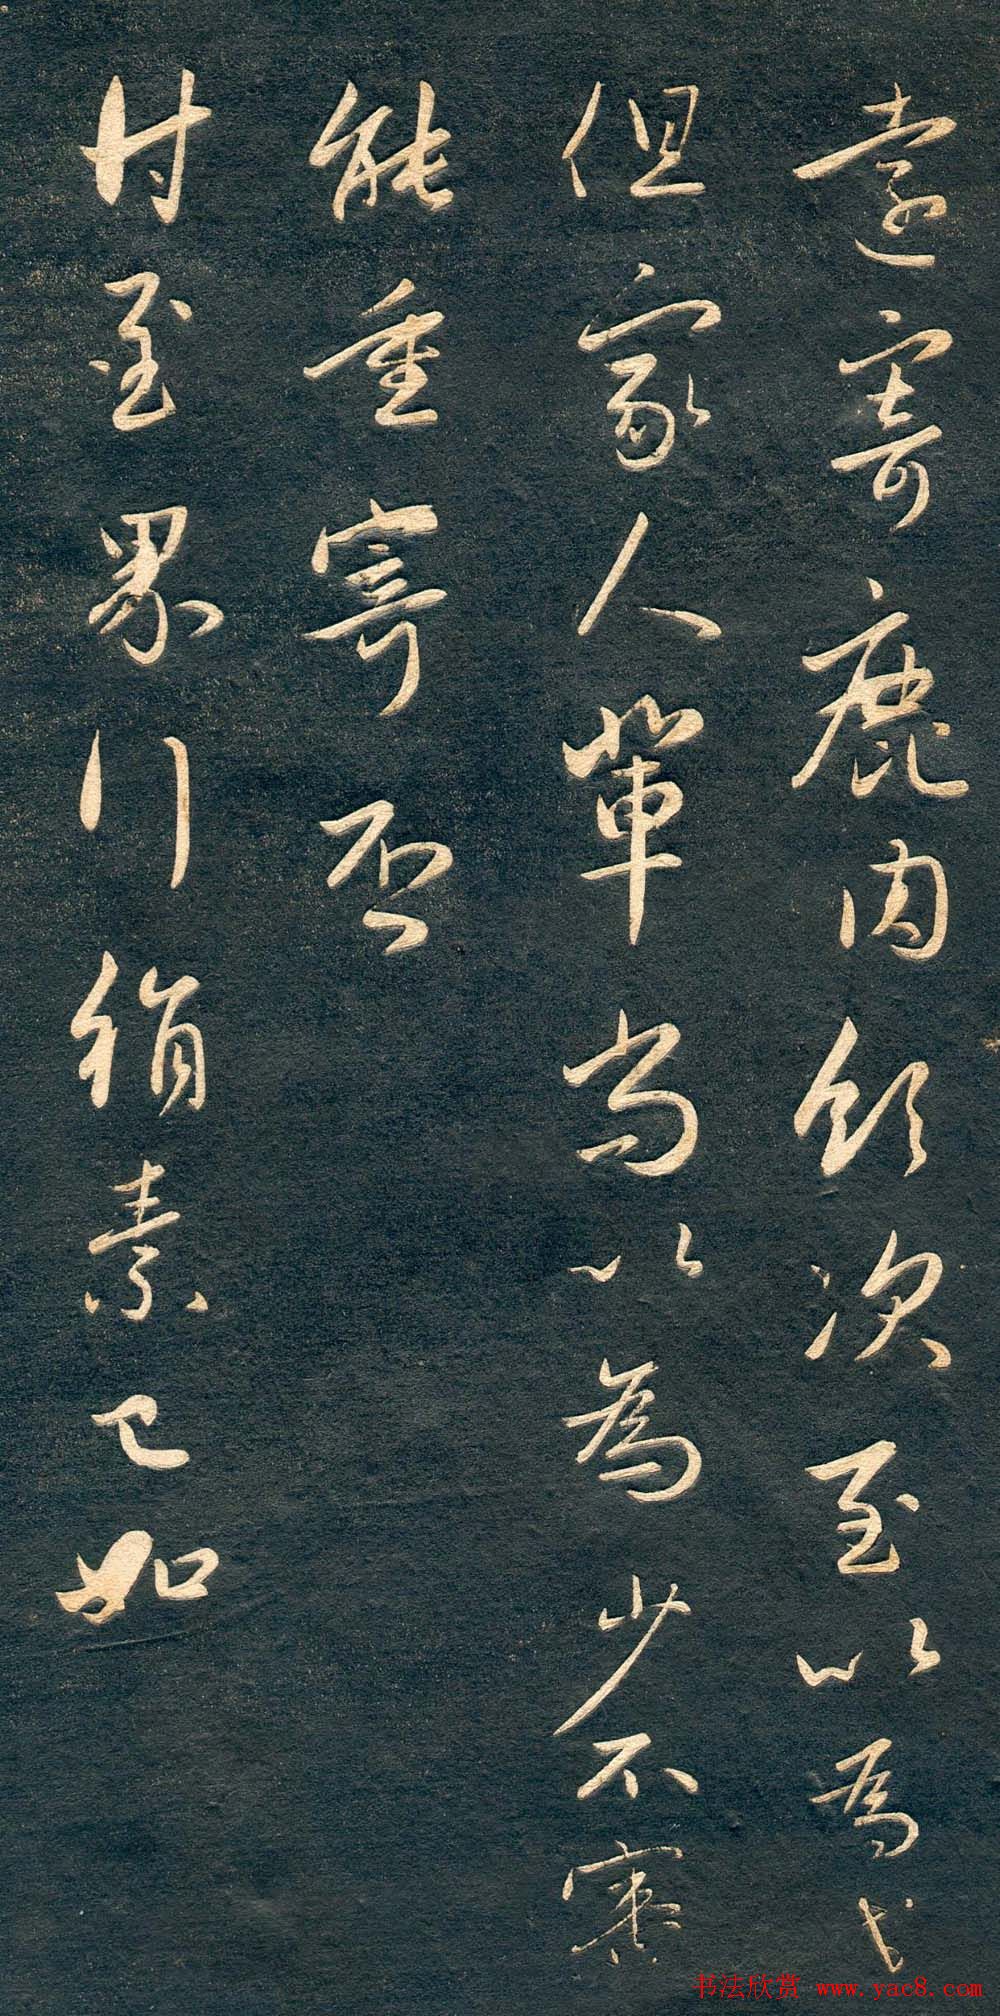 遠寄鹿肉領次至以為少
但家人輩尚以為少不審
能重寄否
付至界行絹素已如
书法欣赏 www.yac8.com